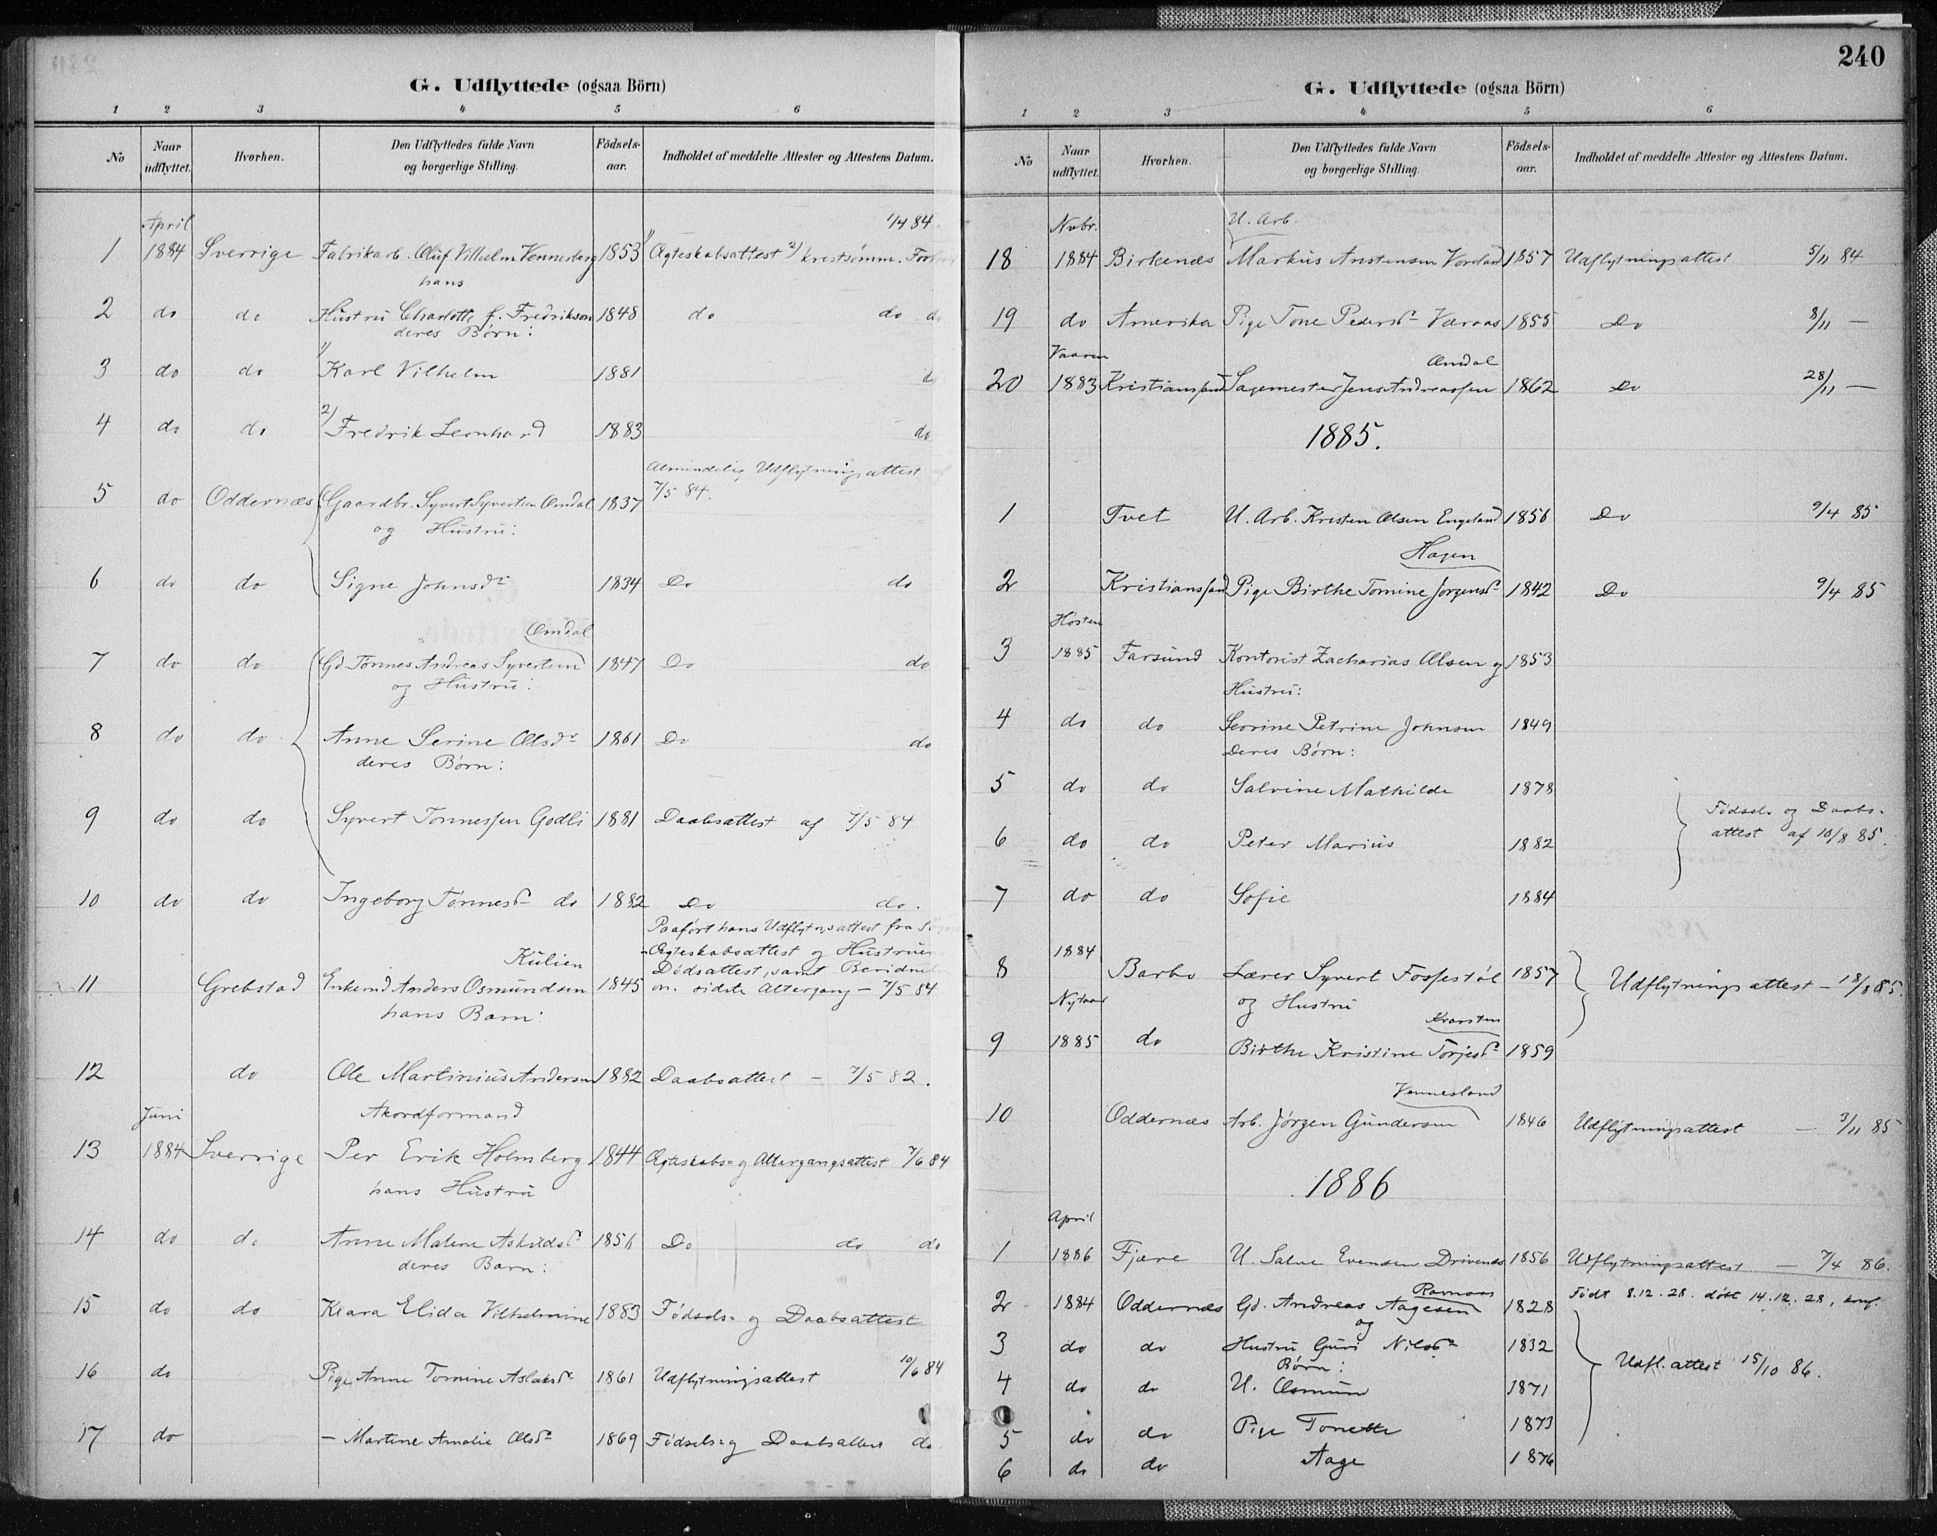 G. Udflyttede (ogsaa Börn)
1 2 3 4 5 6
No Naar udflyttet. Hvorhen. Den Udflyttedes fulde Navn og borgerlige Stilling. Födsels-aar. Indholdet af meddelte Attester og Attestens Datum.
April 1/4 84.
1 1884 Sverrige Fabrikarb. Oluf Vilhelm Vennerberg 1853 1) Ægteskabsattest 2)
hans
2 do do Hustru Charlotte f. Fredrikson 1848 do do do
deres Børn:
3 do do 1) Karl Vilhelm 1881 do
4 do do 2) Fredrik Leonhard 1883 do
Almindelig Udflytningsattest
5 do Oddernæs Gaardbr. Syvert Syvertsen Omdal 1837 7/5 84.
og Hustru:
6 do do Signe Johnsdr 1834 Do do
Omdal
7 do do Gd. Tønnes Andreas Syvertsen 1847 Do do
og Hustru:
8 do do Anne Serine Olsdr 1861 Do do
deres Børn:
9 do do Syvert Tønnessen Godli 1881 Daabsattest af 7/5 84
10 do do Ingeborg Tønnesdr do 1882 Do do.
Paaført hans Udflytn.sattest fra
Kulien Ægteskabsattest og Hustruens
Dødsattest, samt
11 Grebstad Enkemd Anders Osmundsen 1845 om sidste Altergang — 7/5 84
hans Barn:
12 do Ole Martinius Andersen 1882 Daabsattest — 7/5 82.
Juni Akordformand
13 1884 Sverrige Per Erik Holmberg 1844 Ægteskabs- og Altergangsattest 7/6 84
hans Hustru
14 do do Anne Malene Askildsdr 1856 Do do do
deres Barn:
15 do do Klara Elida Vilhelmine 1883 Fødsels- og Daabsattest
16 do Pige Anne Tomine Aslaksdr 1861 Udflytningsattest 10/6 84
17 do — Martine Amalie Olsdr 1869 Fødsels- og Daabsattest do
240
G. Udflyttede (ogsaa Börn)
1 2 3 4 5 6
No Naar udflyttet. Hvorhen. Den Udflyttedes fulde Navn og borgerlige Stilling. Födsels-aar. Indholdet af meddelte Attester og Attestens Datum.
Novbr. U. Arb.
18 1884 Birkenæs Markus Anstensen 1857 Udflytningsattest 5/11 84
19 do Amerika Pige Tone Pedersdr Væraas 1855 Do 8/11 —
Vaaren Omdal
20 1883 Kristianssand Sagemester Jens Andreassen 1862 Do 28/11 —
1885.
1 Tvet U. Arb. Kristen Olsen Engeland 1856 Do 9/4 85
Hagen
2 Kristianssand Pige Birthe Tomine Jørgensdr 1842 Do 9/4 85
Høsten
3 1885 Farsund Kontorist Zacharias Olsen og 1853
Hustru:
4 do do Serine Petrine Johnsen 1849
Deres Børn:
5 do do Salvine Mathilde 1878
Fødsels og Daabs-
attest af 10/8 85.
6 do do Peter Marius 1882
7 do do Sofie 1884
1884
8 Barbo Lærer Syvert Fossestøl 1857 Udflytningsattest — 18/8 85.
Nytaar og Hustru
Kvarsten
9 1885 do Birthe Kristine Torjesdr 1859
Vennesland
10 Oddernæs Arb. Jørgen Gundersen 1846 Udflytningsattest — 3/11 85
1886
April
1 1886 Fjære U. Salve Evensen Drivenes 1856 Udflytningsattest — 7/4 86.
Ravnaas Født 8.12.28. døbt 14.12.28,
2 1884 Oddernæs Gd. Andreas Aagesen 1828
og
3 do do Hustru Guri Nilsdr 1832
Børn: Udfl.attest 15/10 86.
4 do do U. Osmund 1871
5 do do Pige Tonette 1873
6 do do Aage 1876